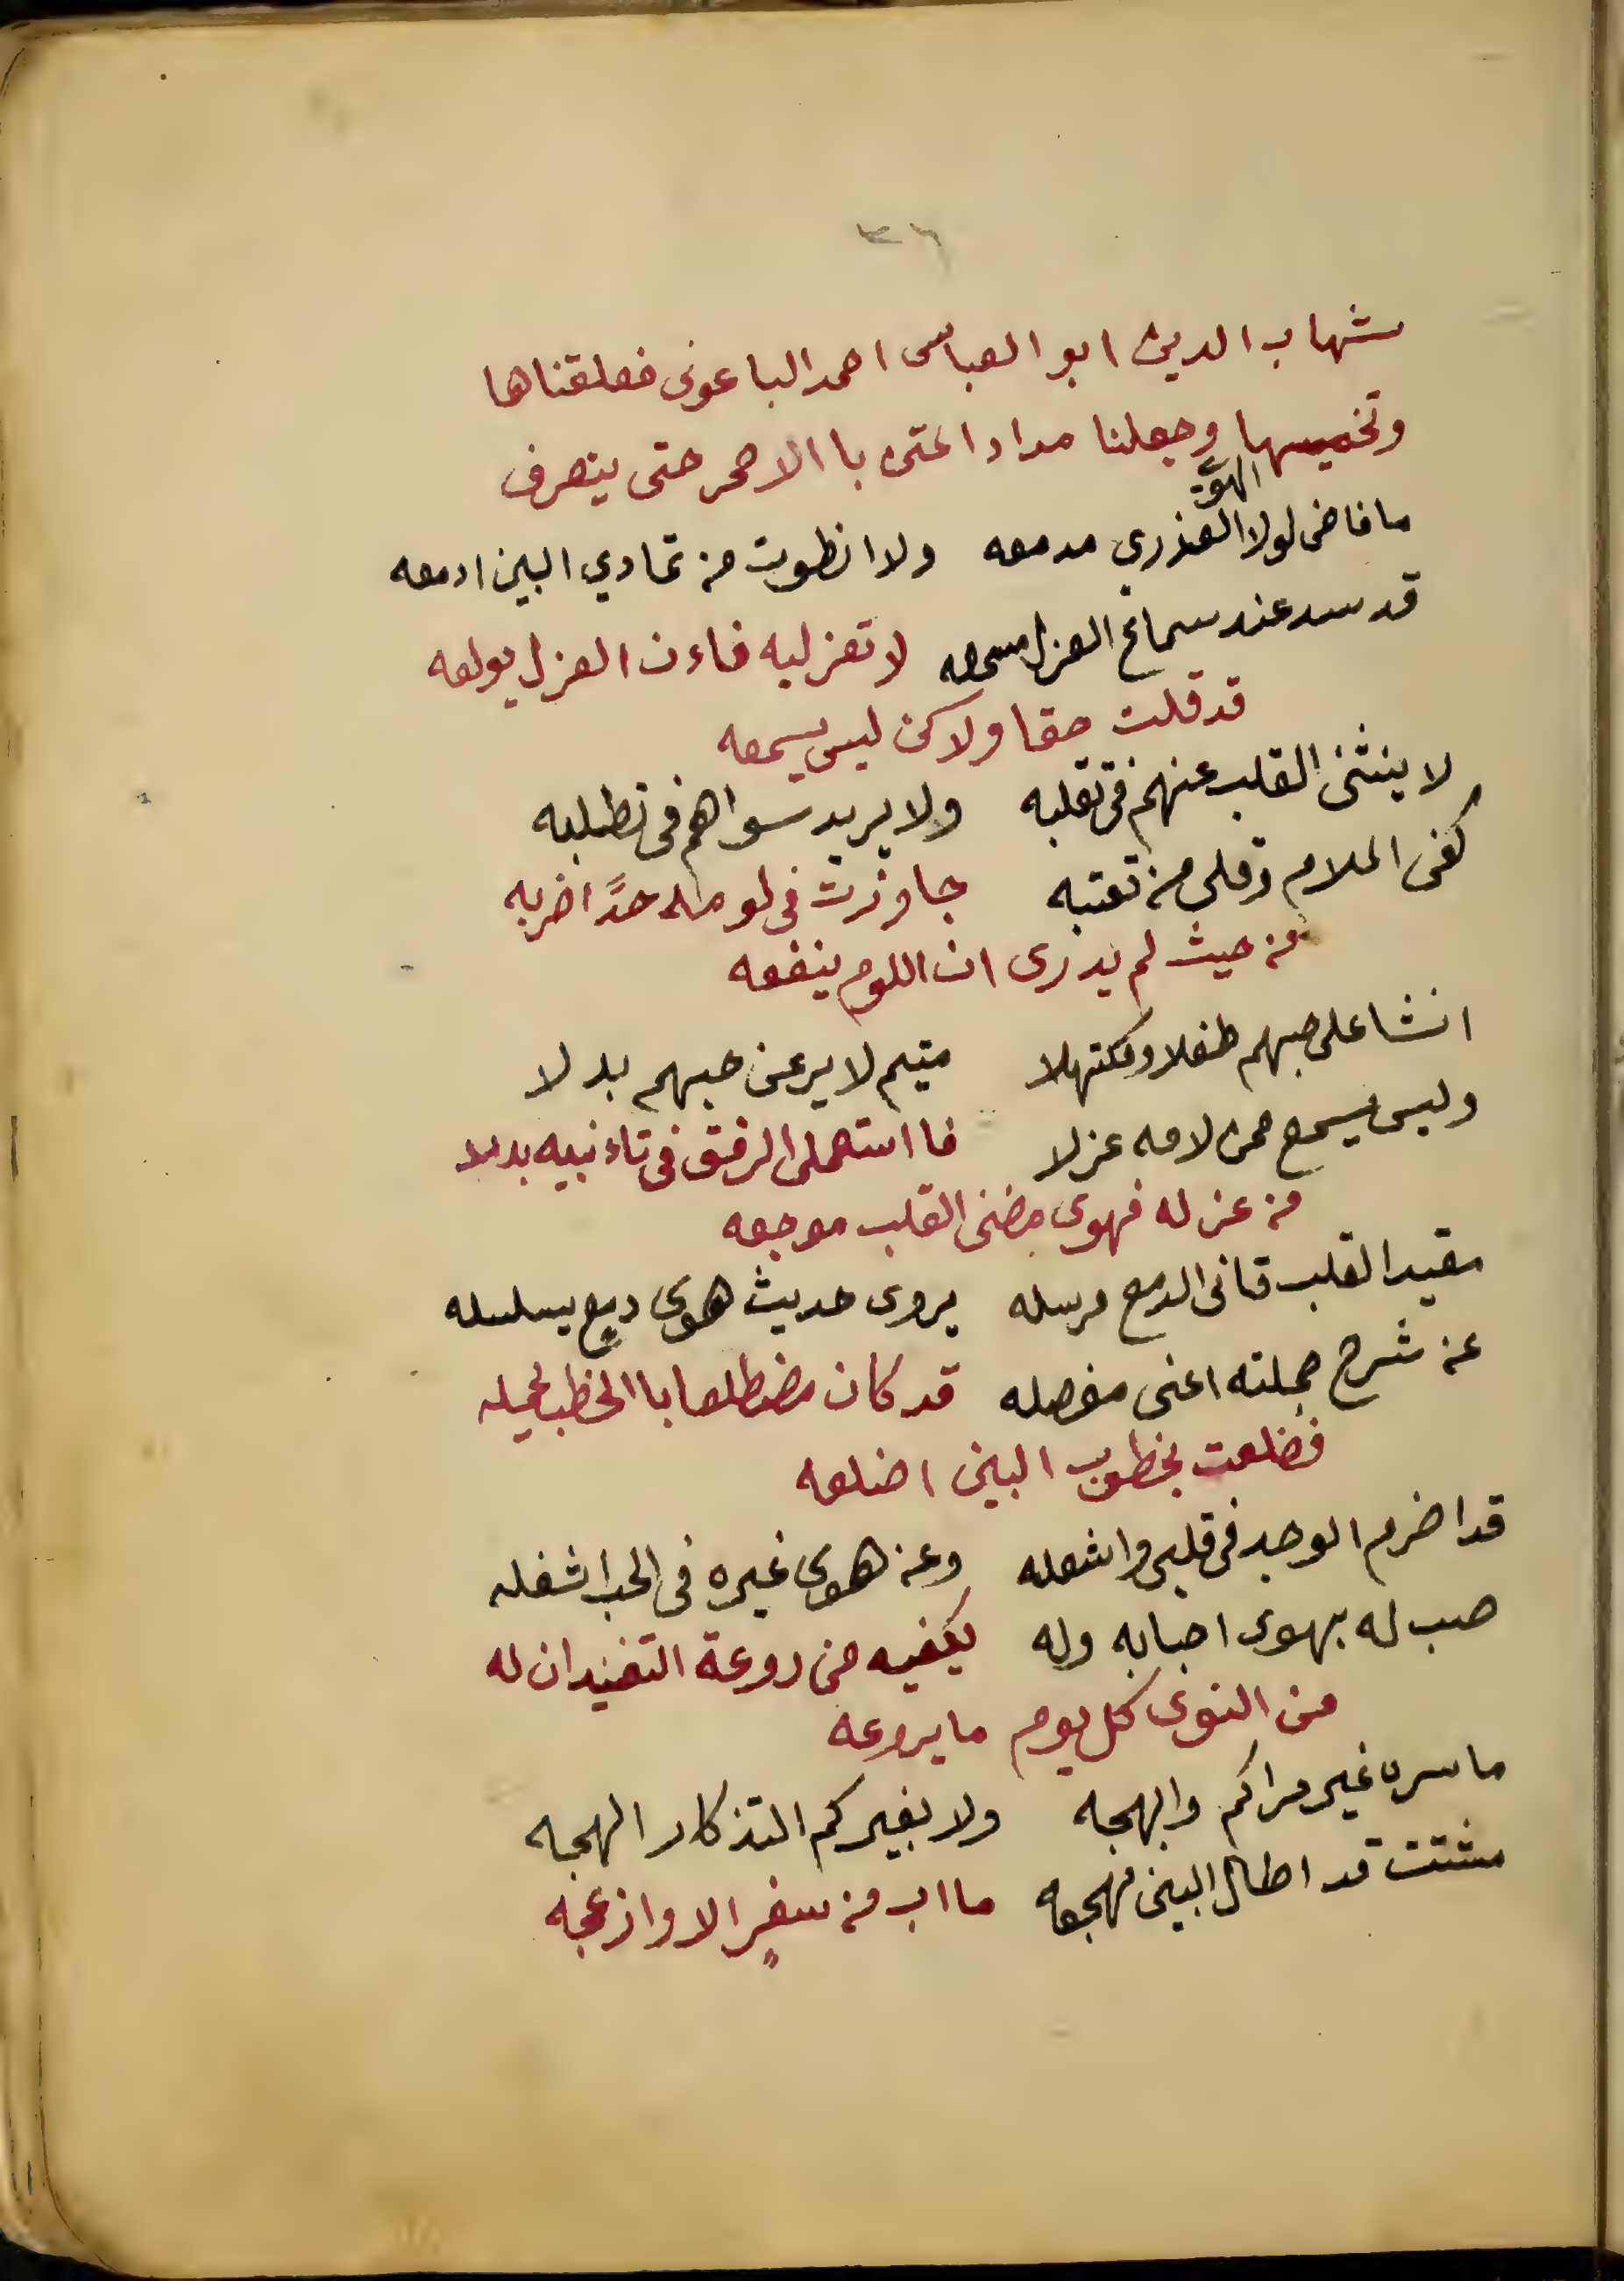 ٣٦
شهاب الدين ابو العباس احمد الباعونى فعلقناها
وتخميسها وجعلنا مدادا عتى با الاحمر حتى ينصرف
الهوى
ما فاض لولا العذري مدمعه ولا انطوت من تمادي البين ادمعه
قد سد عند سماع العزل مسمعه لا تعزليه فاءن العزل يولعه
قد قلت حقا ولاكن ليس يسمعه
لا ينثنى القلب عنهم فى تقلبه ولا يريد سواهم فى تطلبه
كفى الملام وقلى من تعتبه جاوزت فى لومه حدًا اضر به
من حيث لم يدرى ان اللوم ينفعه
انشا على حبهم طفلا ومكتهلا متيم لا يرعن حبهم بدلا
وليس يسمع ممن لامه عزلا فا استعملى الرفق فى تاءنبيه بدلا
من عزله فهوى مضنى القلب موجعه
مقيد القلب قانى الدمع مرسله يروى حديث هوى دمع يسلسله
عن شرح جملته اغنى مفصله قد كان مضطلعا با الخطب يحمله
فضلعت بخطوب البين اضلعه
قد اضرم الوجد فى قلبى واشعله وعن هوى غيره فى الحب اشغله
صب له بهوى احبابه وله يكفيه من روعة التفنيد ان له
من النوى كل يوم ما يروعه
ما سره غير مراكم وابهجه ولا بغيركم التذكار الهجه
مشتت قد اطال البين مهجعه ما اب من سفرٍ الا وازعجه